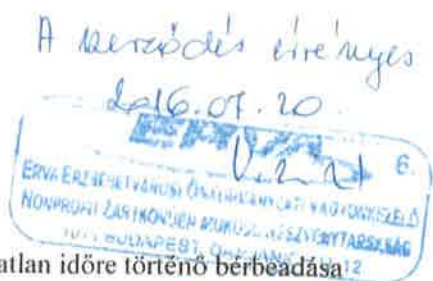 A szerződés érvényes
2016.07.20.
ERVA
6.
ERVA ERZSÉBETVÁROSI ÖNKORMÁNYZATI VAGYONKEZELŐ
NONPROFIT ZÁRTKÖRŰEN MŰKÖDŐ RÉSZVÉNYTÁRSASÁG
BUDAPEST,
12
atlan időre történő bérbeadása